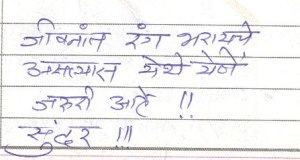 जीवनांत रंग भरायचे
असल्यास येथे येणे
जरुरी आहे !!
सुंदर !!!